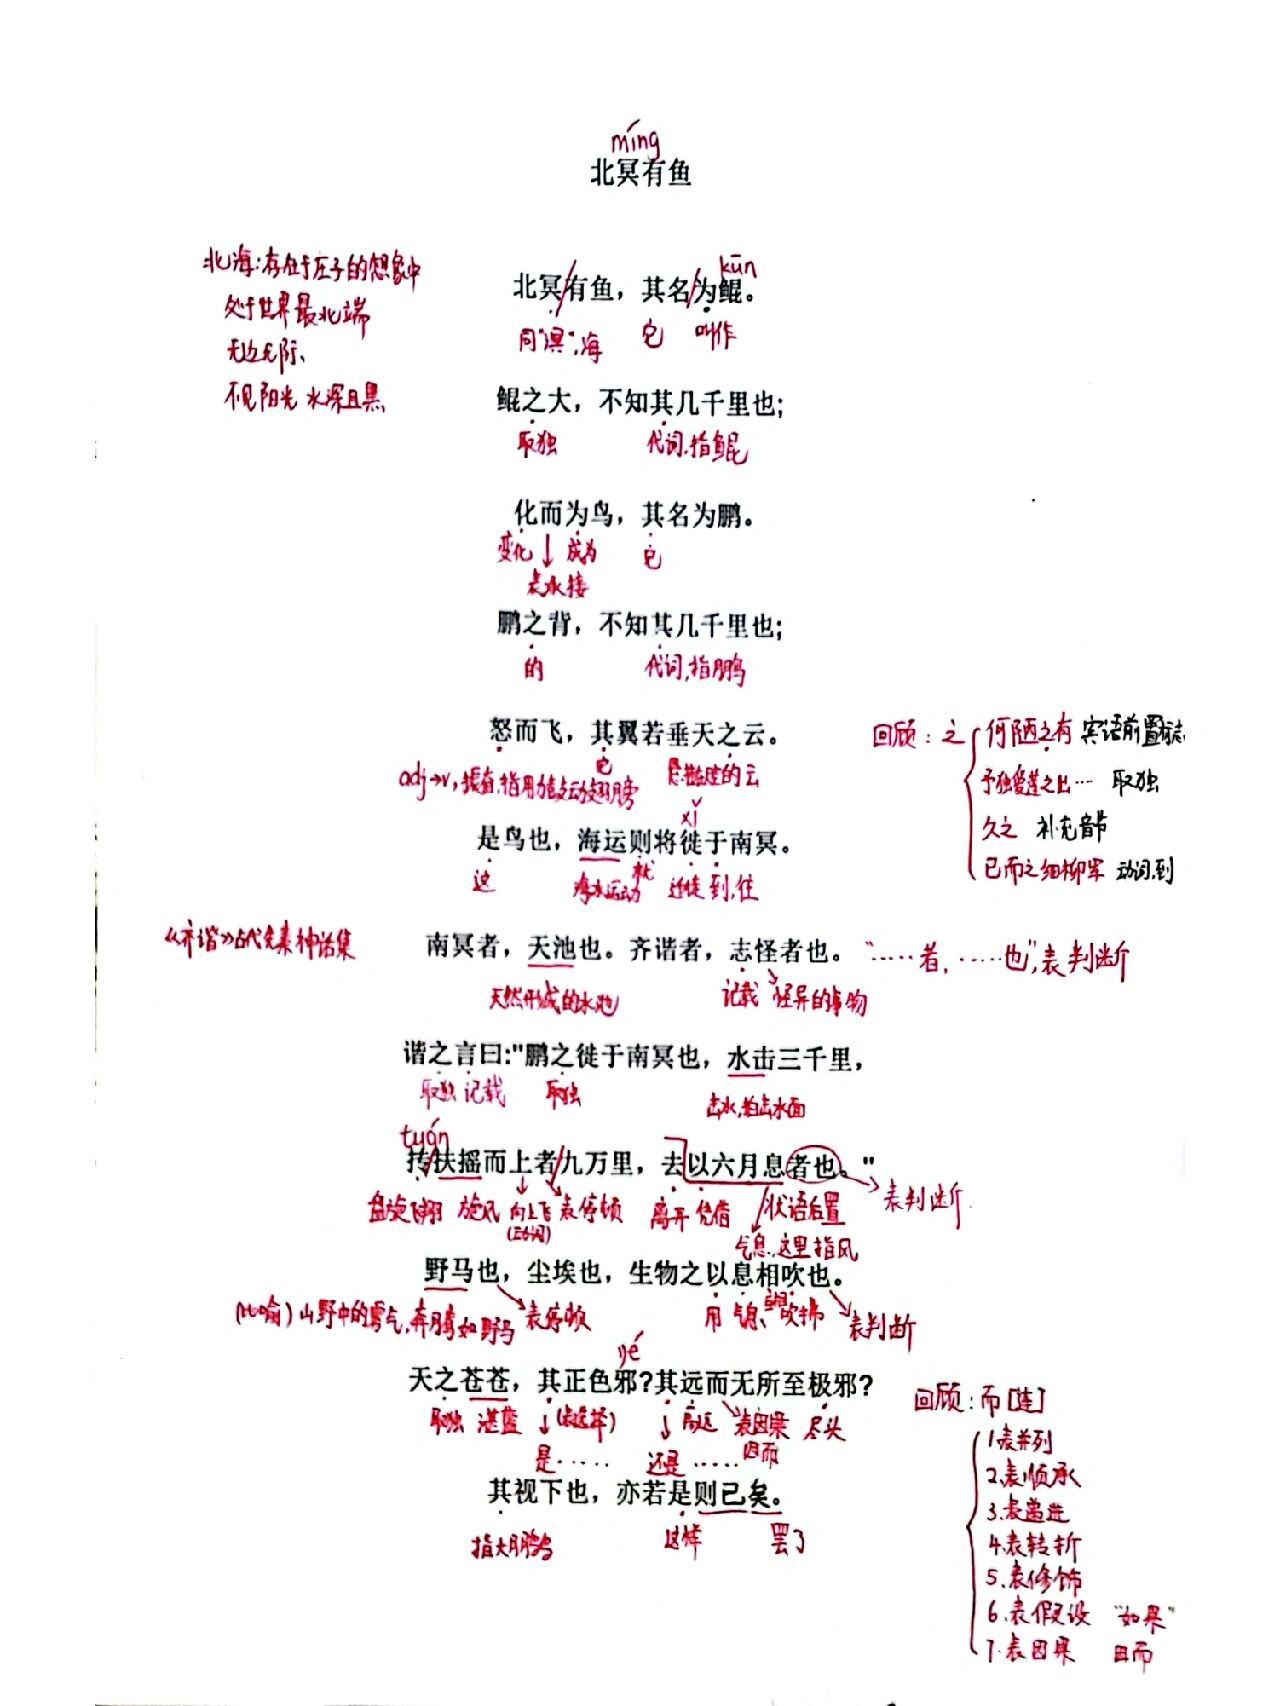 míng
北冥有鱼
北海:存在于庄子的想象中
处于世界最北端
无边无际、
不见阳光 水深且黑
kūn
北冥/有鱼，其名/为鲲。
同"溟",海 它 叫作
鲲之大，不知其几千里也;
取独 代词,指鲲
化而为鸟，其名为鹏。
变化 成为 它
表承接
鹏之背，不知其几千里也;
的 代词,指鹏
怒而飞，其翼若垂天之云。
它
adj→v,振奋,指用力鼓动翅膀 悬挂 的云
回顾:之
何陋之有 宾语前置标志
予独爱莲之出… 取独
久之 补充音节
已而之细柳军 动词,到
xǐ
是鸟也，海运则将徙于南冥。
这 海水运动 就 迁徙 到,往
南冥者，天池也。齐谐者，志怪者也。
"……者,……也",表判断
《齐谐》古代 神话集
天然形成的水池 记载 怪异的事物
谐之言曰:"鹏之徙于南冥也，水击三千里，
取独 记载 取独 击水,拍击水面
tuán
抟扶摇而上者/九万里，去以六月息者也。"
盘旋飞翔 旋风 向上飞 表停顿 离开 凭借 状语后置
表判断
(动词)
气息,这里指风
野马也，尘埃也，生物之以息相吹也。
(比喻)山野中的雾气,奔腾如野马 表停顿 用 气息、 吹拂 表判断
yé
天之苍苍，其正色邪?其远而无所至极邪?
取独 湛蓝 (表选择) 高远 表因果 尽头
因而
是…… 还是……
其视下也，亦若是则已矣。
指大鹏鸟 这样 罢了
回顾:而[连]
1.表并列
2.表顺承
3.表递进
4.表转折
5.表修饰
6.表假设 "如果"
7.表因果 因而